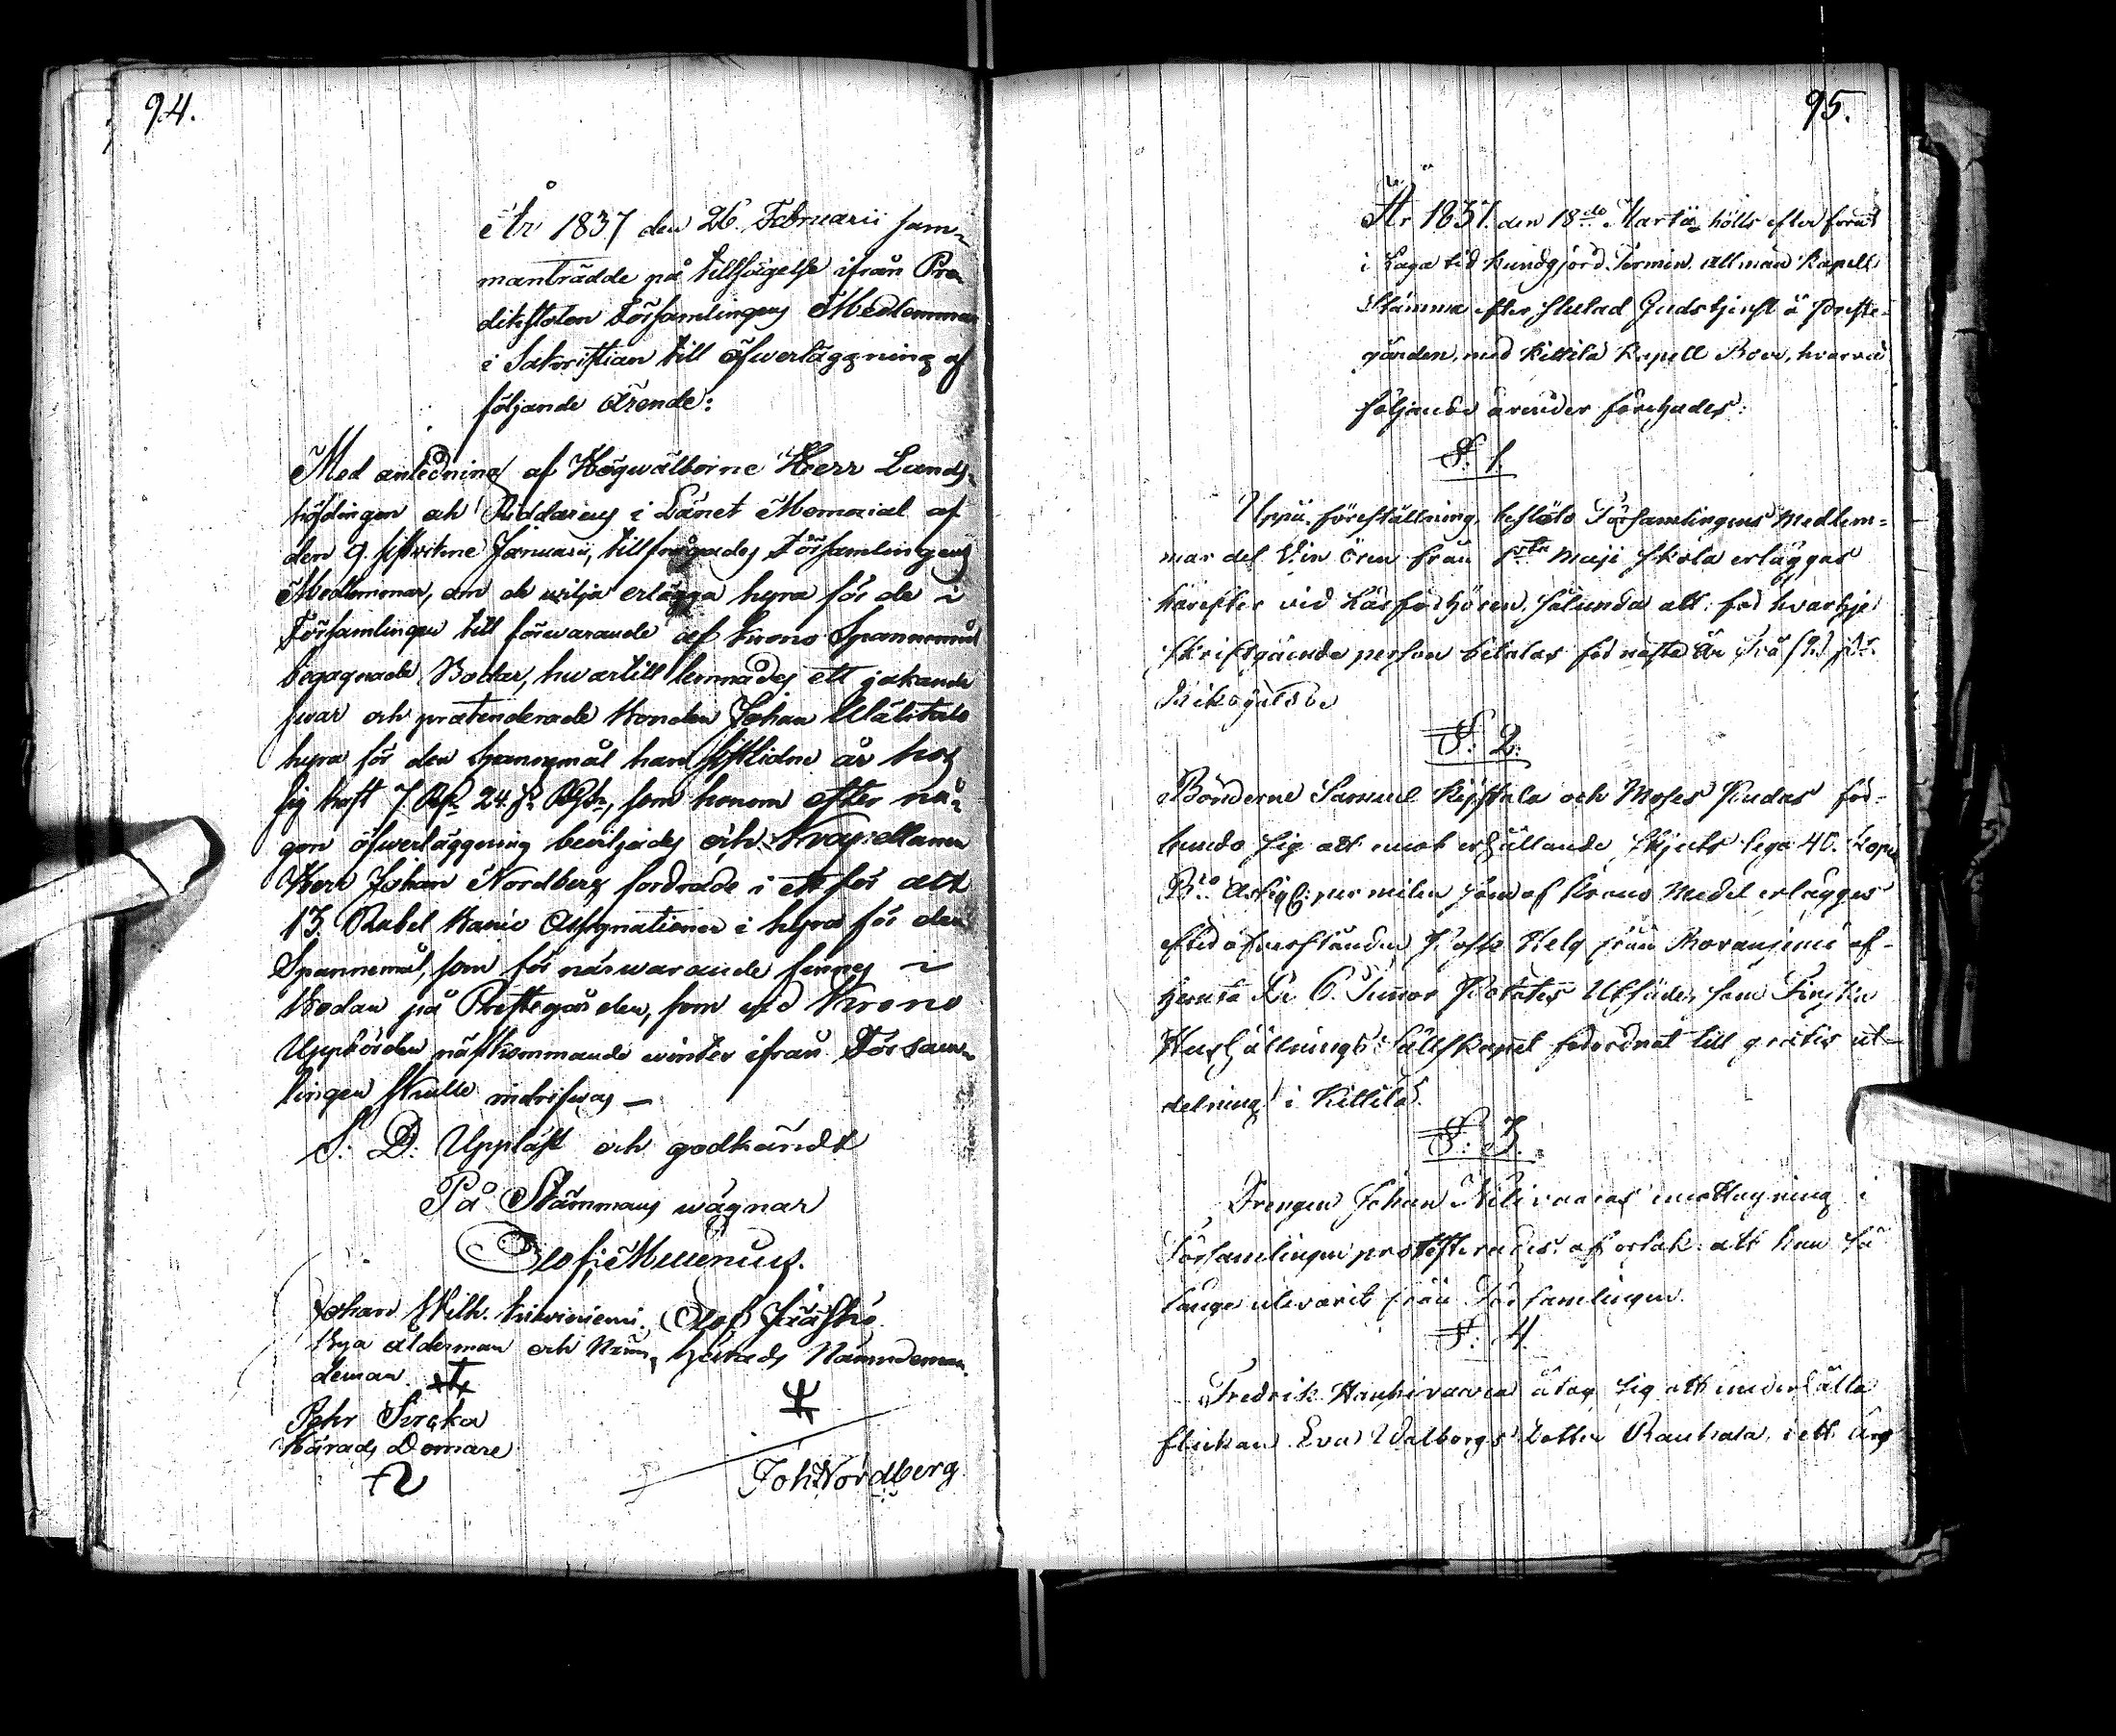 94.
År 1837 den 26. Februarii sam-
manträdde på tillsägelse ifrån Pre-
dikstolen Församlingens Medlemmar
i Sakristian till öfwerläggning af
följande Ärende:
Med anledning af Högwälborne Herr Lands-
höfdingen och Riddarens i Länet Memorial af
den 9. sistwikne Januarii, tillfrågades Församlingens
Medlemmar, om de wilja erlägga hyra för de i
Församlingen till förwarande af Krono Spannemål
begagnade Bodar, hwartill lemnades ett jakande
swar och prætenderade Bonden Johan Wälitalo
hyra för den spannemål han sistlidne år hos
sig haft 7 24. som honom efter nå-
gon öfwerläggning beviljades och Kapellanen
Herr Johan Nordberg fordrade i ett för allt
13 Rubel Banco Assignationer i hyra för den
Spannemål, som för närwarande finnes i
Bodan på Prestegården, som wid Krono
Uppbörden nästkommande winter ifrån Försam-
lingen skulle indrifwas —
S: D: Uppläst och godkändt
På Stämmans wägnar
Olof Mellenius.
Johan Wilh. Olof
Bya ålderman och Näm- Härads Nämndeman
deman.
Pehr Sirkka
Härads Domare
Joh: Nordberg
95.
År 1837. den 18de Martii hölls efter förut
i Laga tid kundgjord Termin allmän Kapell
Stämma efter slutad Gudstjenst å Preste-
gården, med Kittilä Kapell Boer, hvarvid
följande ärender förehades:
§. 1.
Uppå föreställning, beslöto Församlingens Medlem-
mar det Vin ören från 1sta Maji skola erläggas
härefter vid Läsförhören, sålunda att för hvarje
skriftgående person betalas för nästa år Två (2)
Riksgälds
§. 2.
Bönderne Samuel och Moses för-
bundo sig att emot erhållande skjuts lega 40. Kopek
Bco Assign: per milen som af Krono Medel erlägges
från Rovaniemi af-
hemta 6. Tunnor Potates Utsäde, som Finska
Hushållnings Sällskapet förordnat till gratis ut-
delning i Kittilä.
§. 3.
Drengen Johan mottagning i
Församlingen protesterades: af orsak att han så
länge utevarit från Församlingen.
§. 4.
Fredrik åtog sig att underhålla
flickan Eva Walborgs Dotter Rautiola i ett års